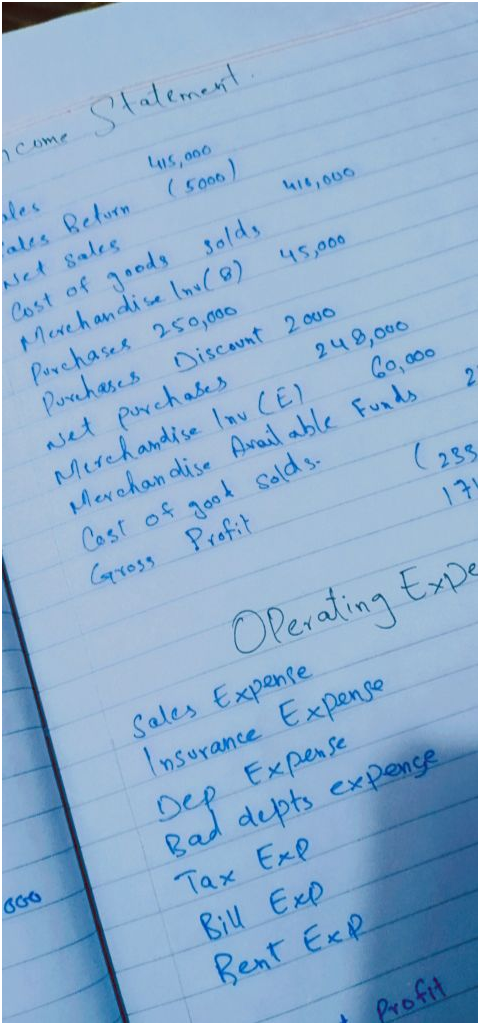 come Statement.
ales 415,000
ales Return (5000)
Net Sales 410,000
Cost of goods solds
Merchandise Inv(B) 45,000
Purchases 250,000
Purchases Discount 2000
Net purchases 248,000
Merchandise Inv (E) 60,000
Merchandise Available Funds 2
Cost of good solds. (233
Gross Profit 17
Operating Expe
Sales Expense
Insurance Expense
Dep Expense
Bad depts expense
Tax Exp
Bill Exp
Rent Exp
000
Profit